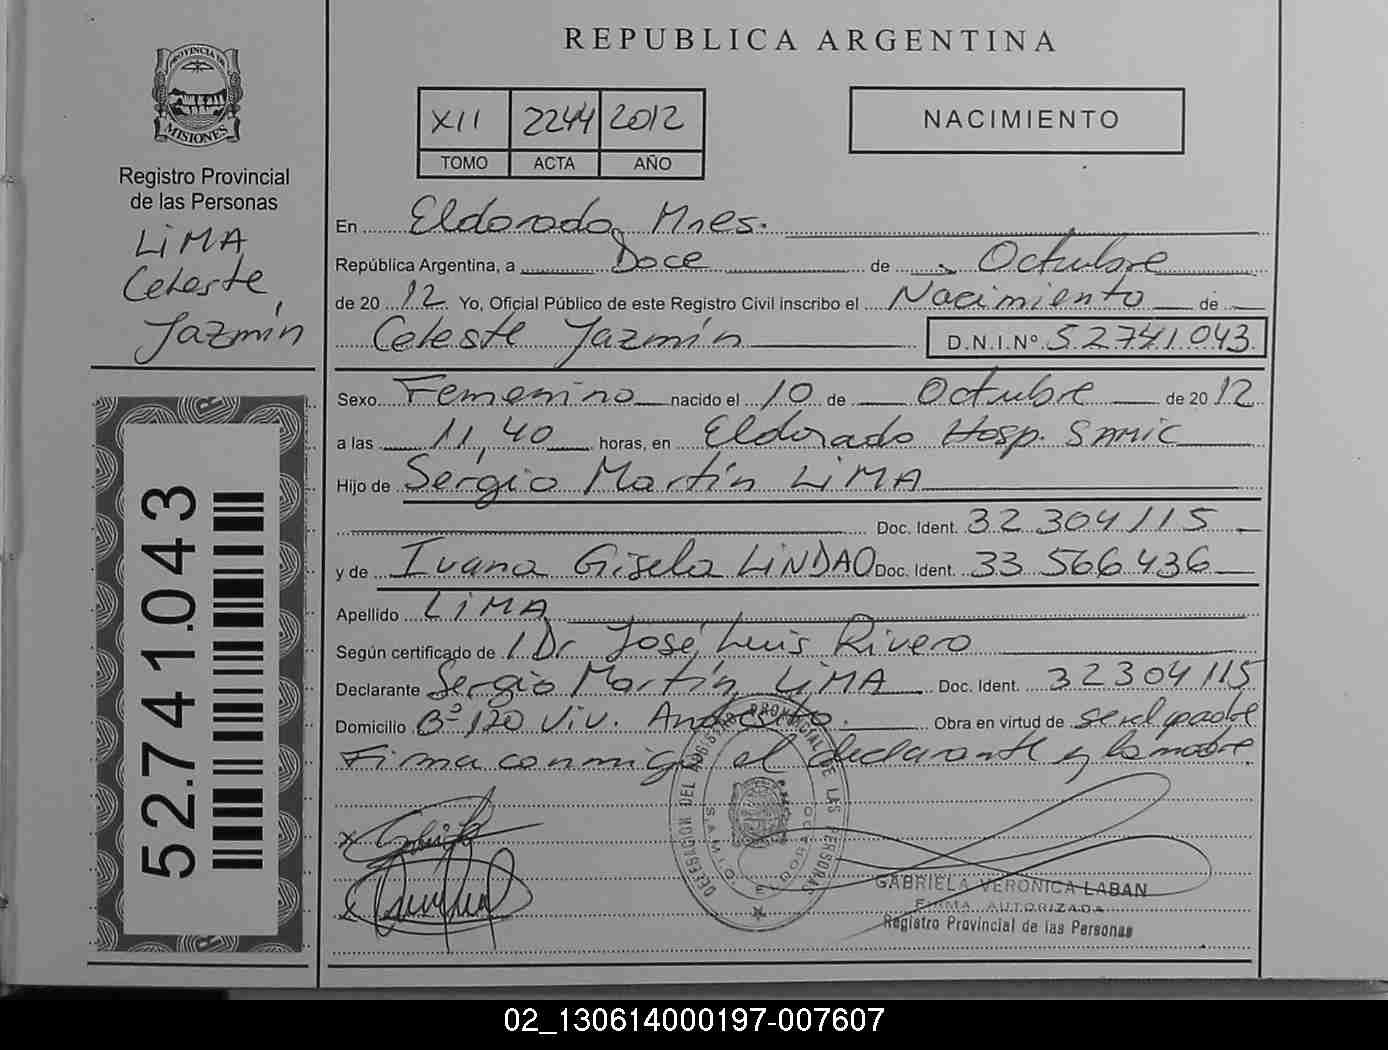 REPUBLICA ARGENTINA
PROVINCIA DE
MISIONES
Registro Provincial
de las Personas
LiMA
Celeste,
Jazmín
52.741.043
XII 2244 2012
TOMO ACTA AÑO
NACIMIENTO
En Eldorado, Mnes.
República Argentina, a Doce de Octubre
de 20 12 Yo, Oficial Público de este Registro Civil inscribo el Nacimiento de
Celeste Jazmín D.N.I.Nº. 52741043
Sexo Femenino nacido el 10 de Octubre de 20 12
a las 11,40 horas, en Eldorado Hosp. SAMIC
Hijo de Sergio Martín LiMA
Doc. Ident. 32 304 115
y de Ivana Gisela LiNDAO Doc. Ident. 33 566 436
Apellido LiMA
Según certificado de Dr José Luis Rivero
Declarante Sergio Martín LiMA Doc. Ident. 32304115
Domicilio Bº 120 Viv. Andresito. Obra en virtud de ser el padre
Firma conmigo el declarante y la madre
DELEGACION DEL REGISTRO PROVINCIAL DE LAS PERSONAS
GABRIELA VERONICA LABAN
FIRMA AUTORIZADA
Registro Provincial de las Personas
02_130614000197-007607